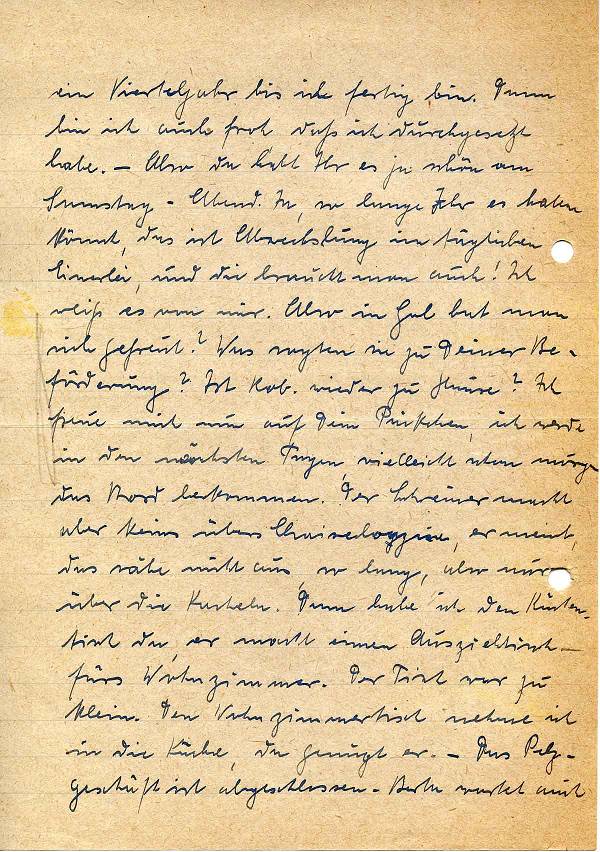 ein Vierteljahr bis ich fertig bin. Dann
bin ich auch froh daß ich durchgesetzt
habe. – Also da habt Ihr es ja schön am
Samstag - Abend. Ja, so lange Ihr es haben
könnt, das ist Abwechslung im täglichen
Einerlei, und die braucht man auch! Ich
weiß es von mir. Also in Hal hat man
sich gefreut? Was sagten sie zu Deiner Be-
förderung? Ist Rob. wieder zu Hause? Ich
freue mich nun auf Dein Päckchen, ich werde
in den nächsten Tagen vielleicht schon morgen
das Bord bekommen. Der Schreiner macht
aber keins übers Chaiselongue, er meint,
das sähe nicht aus, so lang, also nur
über die Kacheln. Dann habe ich den Küchen-
tisch da, er macht einen Ausziehtisch
fürs Wohnzimmer. Der Tisch war zu
klein. Den Wohnzimmertisch nehme ich
in die Küche, da genügt er. – Das Pelz-
geschäft ist abgeschlossen - Berta wartet auch